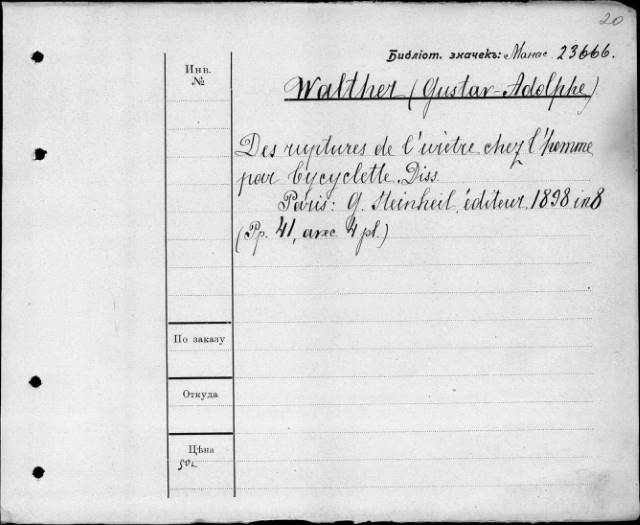 20
Библіот. значекъ: Манас. 23666.
Инв.
№
Walther (Gustav-Adolphe)
Des ruptures de l'urètre chez l'homme
par bycyclette. Diss.
Paris: G. Steinheil, éditeur, 1898 in 8
(Pp. 41, avec 4 pl.)
По заказу
Откуда
Цѣна